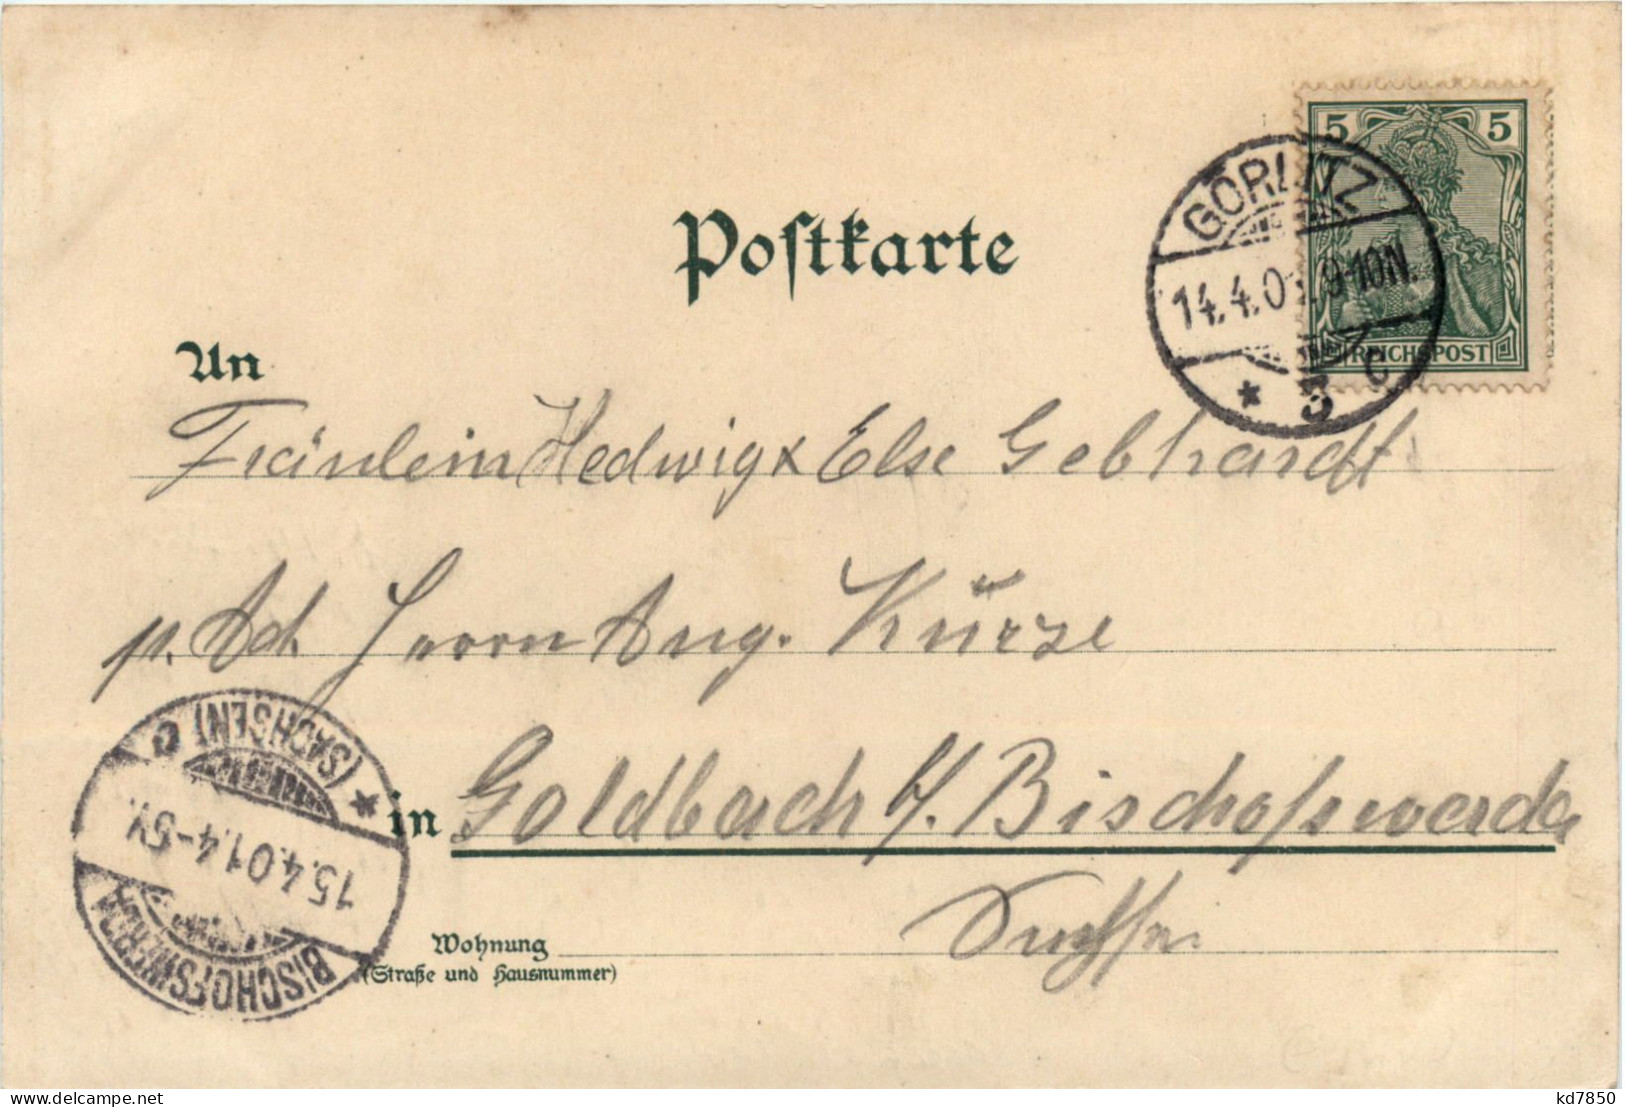 Postkarte
5 5
REICHSPOST
GÖRLITZ
14.4.01. 9-10N.
* 5 c
An
Fräulein Hedwig & Else Gebhardt
p. Ad. Herrn Aug. Kürze
in Goldbach b/. Bischofswerda
Sachsen
Wohnung
(Straße und Hausnummer)
BISCHOFSWERDA
15.4.01. 4-5V.
* (SACHSEN) c
delcampe.net
kd7850